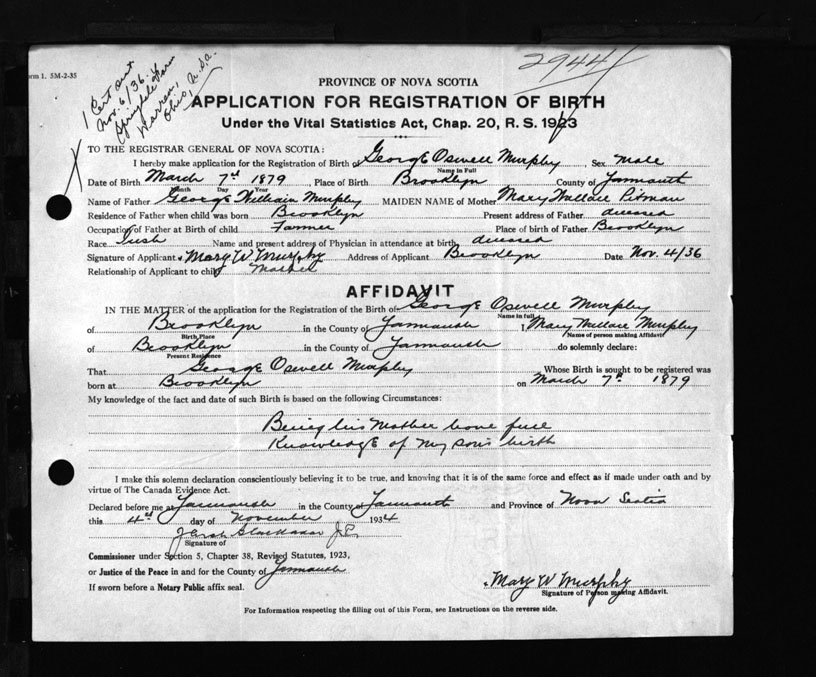 2944
orm 1. 5M-2-35
1 Cert sent
Nov. 6/36.
Springdale Farm
Warren,
Ohio, U.S.A.
PROVINCE OF NOVA SCOTIA
APPLICATION FOR REGISTRATION OF BIRTH
Under the Vital Statistics Act, Chap. 20, R. S. 1923
TO THE REGISTRAR GENERAL OF NOVA SCOTIA:
I hereby make application for the Registration of Birth of George Oswell Murphy, Sex Male
Name in Full
Date of Birth March 7th 1879, Place of Birth Brooklyn County of Yarmouth
Month Day Year
Name of Father George William Murphy MAIDEN NAME of Mother Mary Wallace Pitman
Residence of Father when child was born Brooklyn Present address of Father deceased
Occupation of Father at Birth of child Farmer Place of birth of Father Brooklyn
Race Irish Name and present address of Physician in attendance at birth deceased
Signature of Applicant Mary W Murphy Address of Applicant Brooklyn Date Nov. 4/36
Relationship of Applicant to child Mother
AFFIDAVIT
IN THE MATTER of the application for the Registration of the Birth of George Oswell Murphy
Name in full
of Brooklyn in the County of Yarmouth I Mary Wallace Murphy
Birth Place Name of person making Affidavit
of Brooklyn in the County of Yarmouth do solemnly declare:
Present Residence
That George Oswell Murphy Whose Birth is sought to be registered was
born at Brooklyn on March 7th 1879
My knowledge of the fact and date of such Birth is based on the following Circumstances:
Being his Mother have full
Knowledge of my son's birth
I make this solemn declaration conscientiously believing it to be true, and knowing that it is of the same force and effect as if made under oath and by
virtue of The Canada Evidence Act.
Declared before me at Yarmouth in the County of Yarmouth and Province of Nova Scotia
this 4th day of November 1934
J.P.
Signature of
Commissioner under Section 5, Chapter 38, Revised Statutes, 1923,
or Justice of the Peace in and for the County of Yarmouth
If sworn before a Notary Public affix seal.
Mary W Murphy
Signature of Person making Affidavit.
For Information respecting the filling out of this Form, see Instructions on the reverse side.